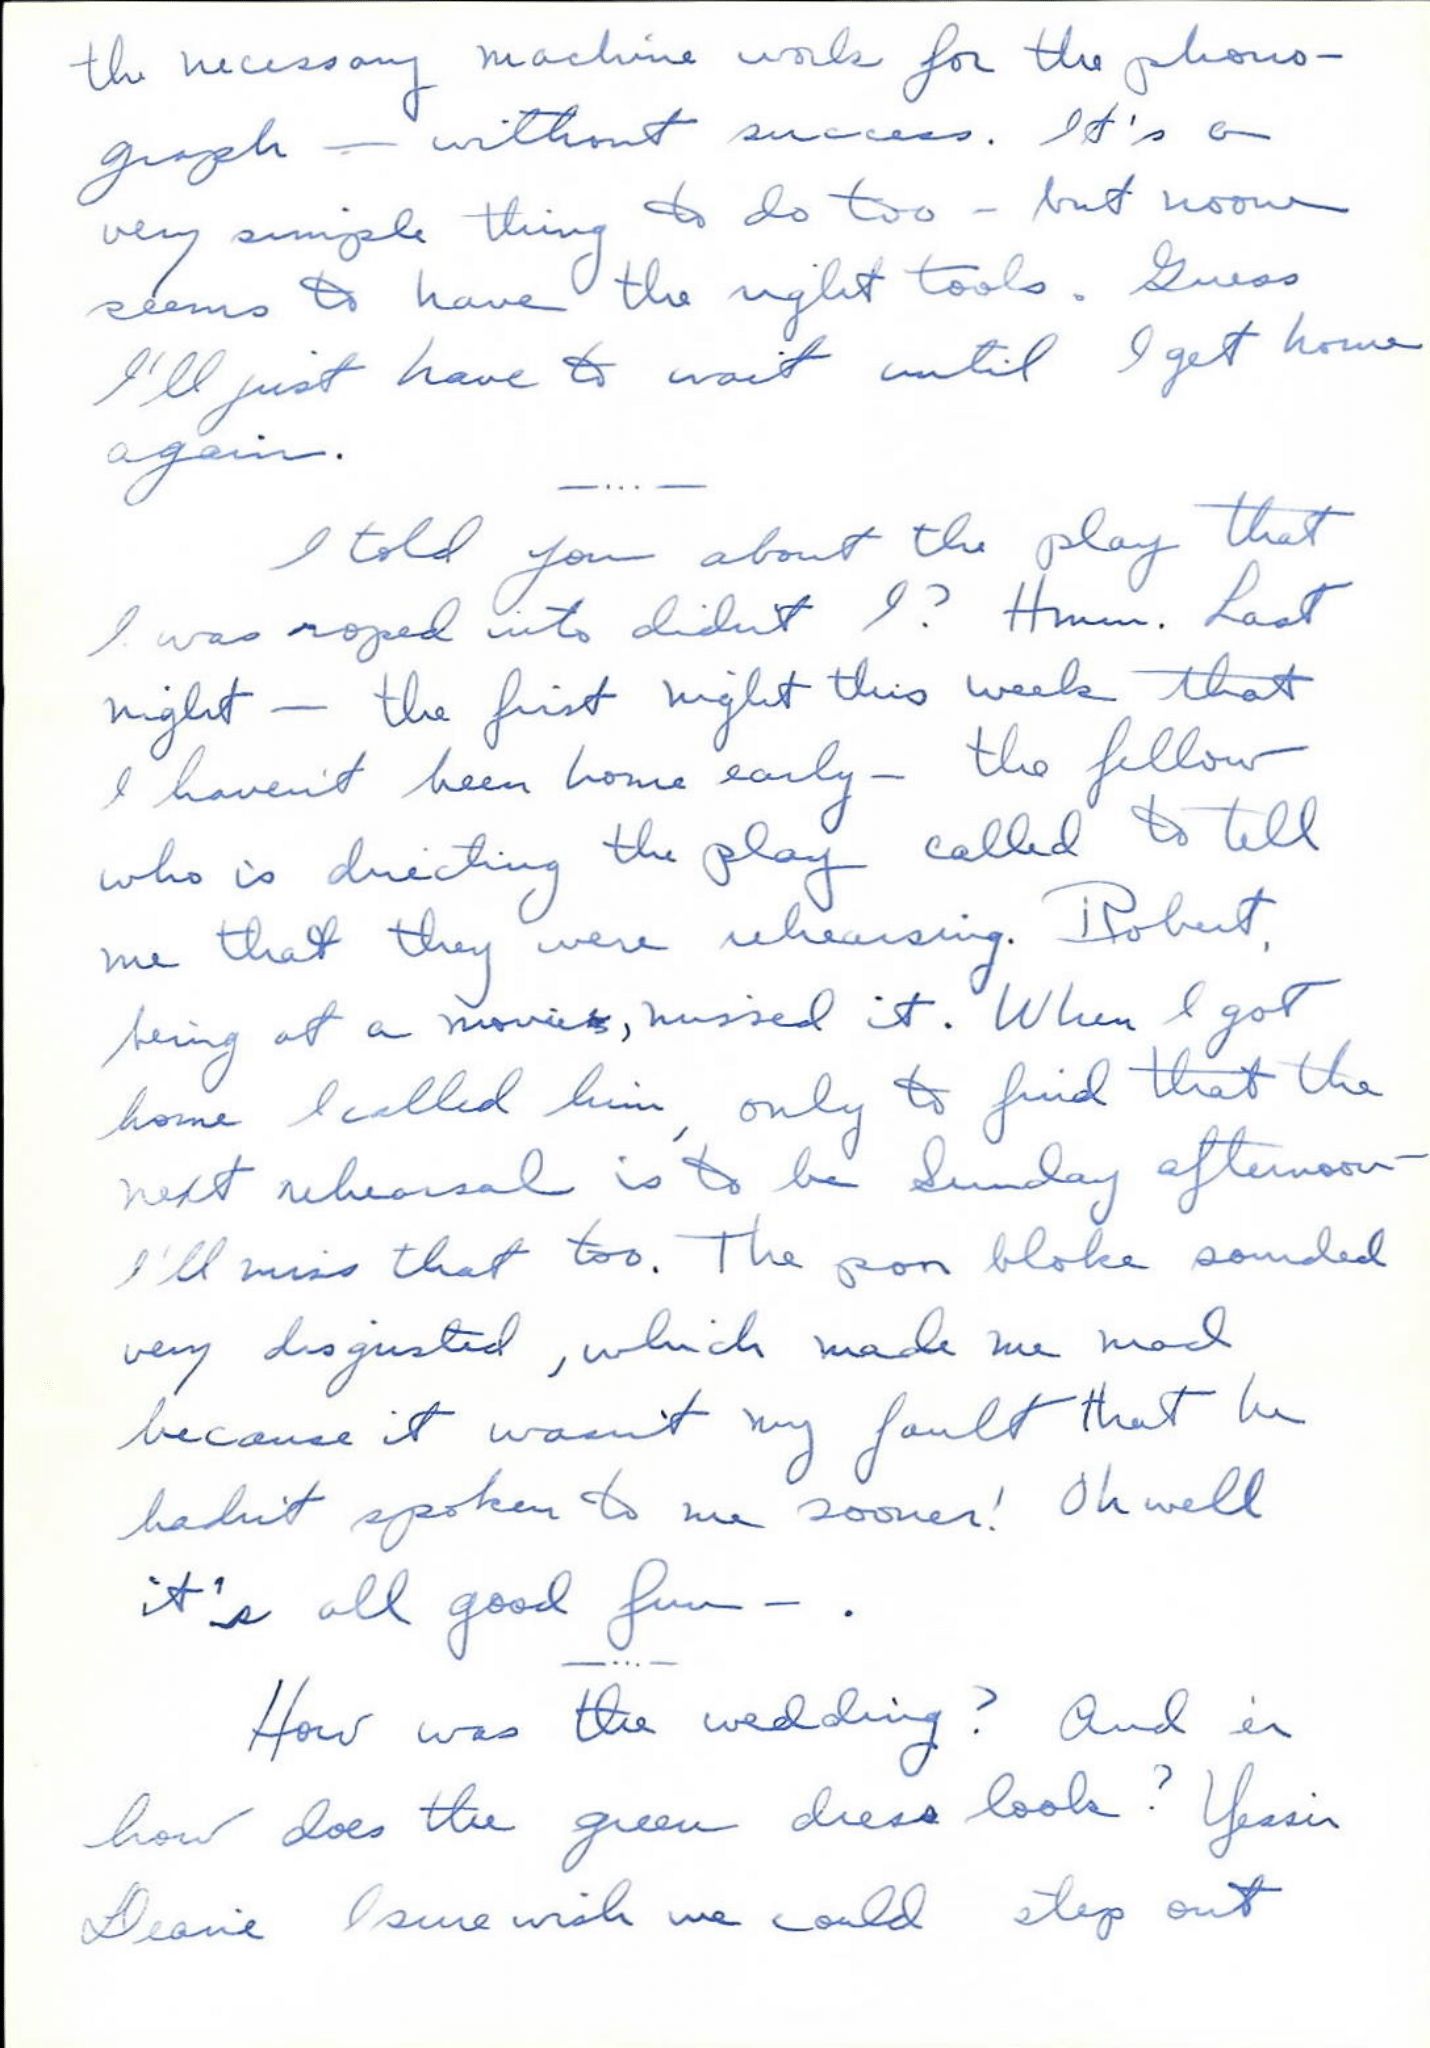 the necessary machine work for the phono-
graph — without success. It's a
very simple thing to do too - but noone
seems to have the right tools. Guess
I'll just have to wait until I get home
again.
—...—
I told you about the play that
I was roped into didn't I? Hmm. Last
night — the first night this week that
I haven't been home early — the fellow
who is directing the play called to tell
me that they were rehearsing. Robert,
being at a movie, missed it. When I got
home I called him, only to find that the
next rehearsal is to be Sunday afternoon —
I'll miss that too. The poor bloke sounded
very disgusted, which made me mad
because it wasn't my fault that he
hadn't spoken to me sooner! Oh well
it's all good fun — .
—...—
How was the wedding? And er
how does the green dress look? Yessir
Deanie I sure wish we could step out